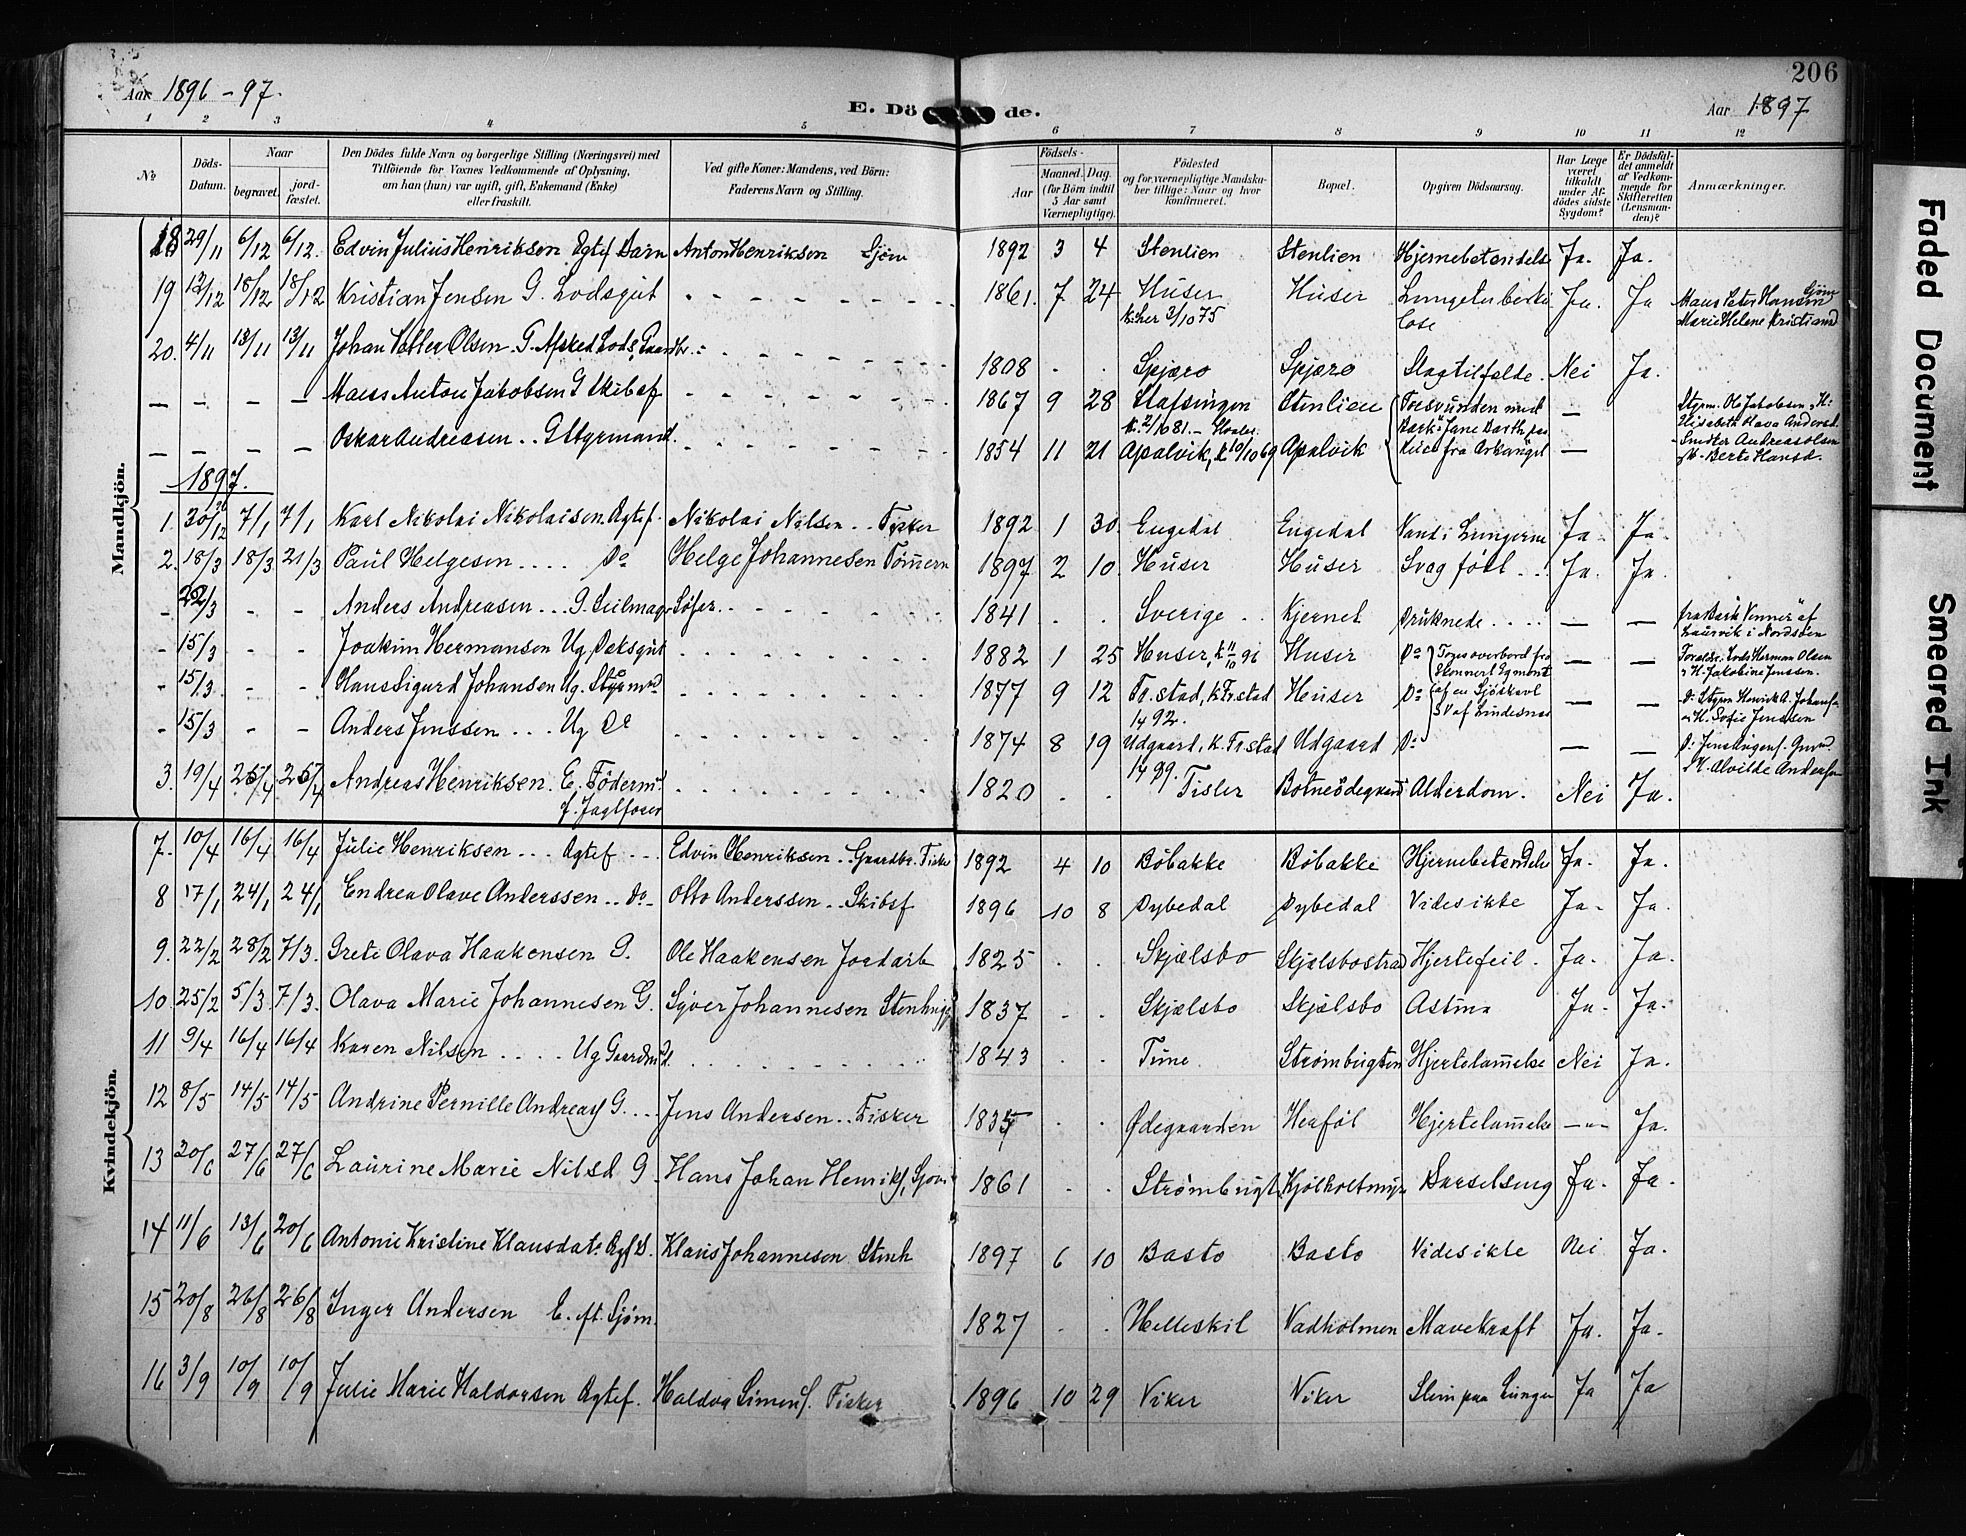 206
Aar 1896 - 97.
E. Dö de.
Aar 1897
1 2 3 4 5 6 7 8 9 10 11 12
No
Döds-Datum.
Naar
begravet.
jord-fæstet.
Den Dödes fulde Navn og borgerlige Stilling (Næringsvei) med
Tilföiende for Voxnes Vedkommende af Oplysning,
om han (hun) var ugift, gift, Enkemand (Enke)
eller fraskilt.
Ved gifte Koner: Mandens, ved Börn:
Faderens Navn og Stilling.
Födsels-
Aar
Maaned. Dag.
(for Börn indtil
5 Aar samt
Værnepligtige).
Födested
og for værnepligtige Mandska-
ber tillige: Naar og hvor
konfirmeret.
Bopæl.
Opgiven Dödsaarsag.
Har Læge
været
tilkaldt
under Af-
dödes sidste
Sygdom?
Er Dödsfal-
det anmeldt
af Vedkom-
mende for
Skifteretten
(Lensman-
den)?
Anmærkninger.
Mandkjön.
18 29/11 6/12 6/12. Edvin Julius Henriksen Ægtef Barn Anton Henriksen Sjøm 1892 3 4 Stenlien Stenlien Hjernebetendelse Ja. Ja.
19 12/12 18/12 18/12 Kristian Jensen G. Lodsgut 1861. 7 24 Huser Huser Lungetuberku Ja. Ja Hans Peter Hansen Sjøm
k. her 3/10 75 lose Marie Helene Kristiansd
20. 4/11 13/11 13/11 Johan Petter Olsen. G. Afsked Lods, Gaardbr. 1808 Spjæro Spjæro Slagtilfelde. Nei Ja.
Hans Anton Jakobsen G Skibsf 1867 9 28 Stafsingen Stenlien Forsvunden med — Styrm. Ole Jakobsen, H:
k. 2/10 81. - Hvaler. Bark "Jane Barth paa Elisabeth Hava Andersd.
Oskar Andreasen .. G Styrmand. 1854 11 21 Apalvik, k 10/10 69 Apalvik Reise fra Arkangel — Andreas Olsen
Berte Hansd.
1897.
1. 30/12 7/1 7/1 Karl Nikolai Nikolaisen Ægtef. Nikolai Nilsen .. Fisker 1892 1 30 Engedal Engedal Vand i Lungerne Ja. Ja.
2. 18/3 18/3 21/3 Paul Helgesen .... Do Helge Johannesen Tømern 1897 2 10. Huser Huser Svag født .. Ja. Ja.
- 22/3 - - Anders Andreasen ... G. Seilmag. Søfar. 1841 . . Sverige . . Kjernet Druknede .... — — fra Bark "Venner" af
Laurvik i Nordsøen
- 15/3 Joakim Hermansen Ug. Deksgut 1882 1 25 Huser, k 11/10 96 Huser Do Toges overbord fra — — Foreldr. Lods Herman Olsen
Skonnert Egmont H. Jakobine Jenssen.
- 15/3 - - Hans Sigurd Johansen Ug. Styrmd 1877 9 12 Fr.stad, k. Fr.stad Huser Do af en Sjøskavl — — Do Styrm Henrik A. Johans.
1892. SV af Lindesnes H. Sofie Jenssen
- 15/3 - - Anders Jenssen ... Ug Do 1874 8 19 Udgaard, k. Fr.stad Udgaard Do — —
H. Alvilde Anders.
3. 19/4 25/4 25/4 Andreas Henriksen. E. Föderm. 1820 . . Tisler Botneödegaard Alderdom. Nei Ja.
Kvindekjön.
7. 10/4 16/4 16/4 Julie Henriksen ... Ægtef ... Edvin Henriksen .. Gaardbr. Fisker 1892 4 10 Bøbakke Bøbakke Hjernebetendelse Ja. Ja.
8 17/1 24/1 24/1 Endrea Olave Anderssen .. Do - Otto Anderssen .. Skibsf 1896 10 8 Dybedal Dybedal Videsikte Ja. Ja.
9. 22/2 28/2 7/3. Grete Olava Haakensen G. Ole Haakensen Jordarb 1825 . . Skjælsbo Skjælsbostrad Hjertefeil. Ja. Ja.
10. 25/2 5/3. 7/3. Olava Marie Johannesen G. Syver Johannesen Stenhug 1837 - . Skjælsbo Skjælsbo Astma Ja. Ja.
11 9/4 16/4 16/4 Karen Nilsen .... Ug Gaardmd. 1843 . . Tune Strømbugten Hjertelammelse Nei Ja.
12 8/5 14/5 14/5 Andrine Pernille Andreas G. ... Jens Andersen .. Fisker 1835 . . Ødegaarden Herføl Hjertelammelse -"- Ja.
13 20/6 27/6 27/6 Laurine Marie Nilsd G. Hans Johan Henriks, Sjøm 1861 . . Strømbugt. Kjølholtmyr Barselseng Ja. Ja.
14 11/6 13/6 20/6 Antonie Kristine Klausdat. Ægf B. Klaus Johannesen Stenh 1897 6 10 Basto Basto Videsikte Nei Ja.
15 20/8 26/8 26/8 Inger Andersen E. eft. Sjøm. 1827 . . Helleskil Vadholmen Mavekræft Ja. Ja.
16 3/9 10/9 10/9 Julie Marie Haldorsen Ægtef. Haldor Simens. Fisker 1896 10 29 Viker Viker Slim paa Lunger Ja Ja
Faded Document
Smeared Ink